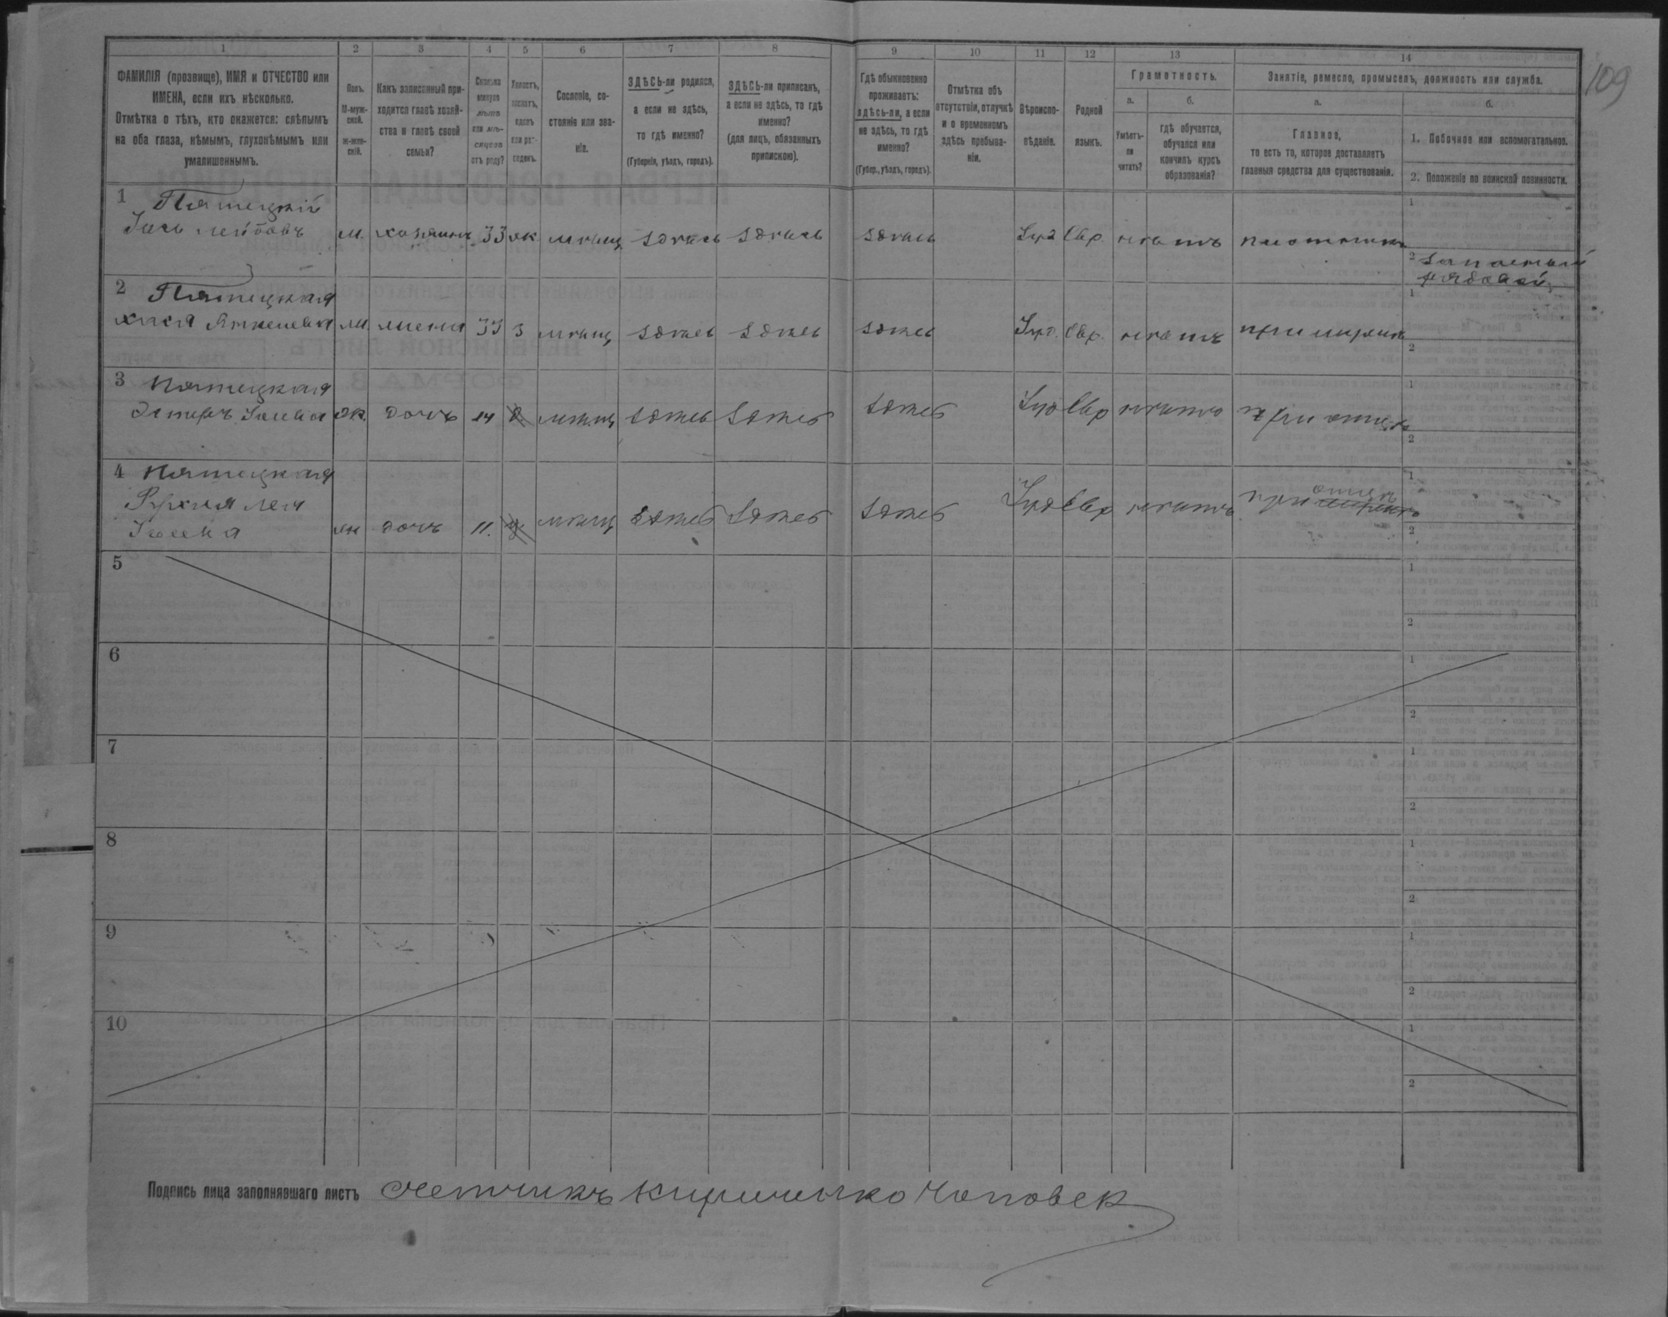 109
1 2 3 4 5 6 7 8 9 10 11 12 13 14
ФАМИЛІЯ (прозвище), ИМЯ и ОТЧЕСТВО или
ИМЕНА, если ихъ нѣсколько.
Отмѣтка о тѣхъ, кто окажется: слѣпымъ
на оба глаза, нѣмымъ, глухонѣмымъ или
умалишеннымъ.
Полъ.
М-муж-
ской.
ж-жен-
скій.
Какъ записанный при-
ходится главѣ хозяй-
ства и главѣ своей
семьи?
Сколько
минуло
лѣтъ
или мѣ-
сяцевъ
отъ роду?
Холостъ,
женатъ,
вдовъ
или раз-
веденъ.
Сословіе, со-
стояніе или зва-
ніе.
ЗДѢСЬ-ли родился,
а если не здѣсь,
то гдѣ именно?
(Губернія, уѣздъ, городъ).
ЗДѢСЬ-ли приписанъ,
а если не здѣсь, то гдѣ
именно?
(для лицъ, обязанныхъ
припискою).
Гдѣ обыкновенно
проживаетъ:
здѣсь-ли, а если
не здѣсь, то гдѣ
именно?
(Губер., уѣздъ, городъ).
Отмѣтка объ
отсутствіи, отлучкѣ
и о временномъ
здѣсь пребыва-
ніи.
Вѣроиспо-
вѣданіе.
Родной
языкъ.
Грамотность.
а.
Умѣетъ-
ли
читать?
б.
гдѣ обучается,
обучался или
кончилъ курсъ
образованія?
Занятіе, ремесло, промыселъ, должность или служба.
а.
Главное,
то есть то, которое доставляетъ
главныя средства для существованія.
б.
1. Побочное или вспомогательное.
2. Положеніе по воинской повинности.
1 Пятецкій
м. хозяинъ 33 жк мѣщ здѣсь здѣсь здѣсь Іуд Евр нѣтъ плотникъ
1
2 запасный
рядовой
2 Пятецкая
жена 33 з мѣщ здѣсь здѣсь здѣсь Іуд. Евр. нѣтъ при мужѣ
1
2
3 Пятецкая
Эстеръ дочь 14 мѣщ здѣсь здѣсь здѣсь Іуд Евр нѣтъ при отцѣ
1
2
4 Пятецкая
Рухля Лея
дочь 11. мѣщ здѣсь здѣсь здѣсь Іуд Евр нѣтъ при отцѣ
1
2
5
1
2
6
1
2
7
1
2
8
1
2
9
1
2
10
1
2
Подпись лица заполнявшаго листъ Счетчикъ